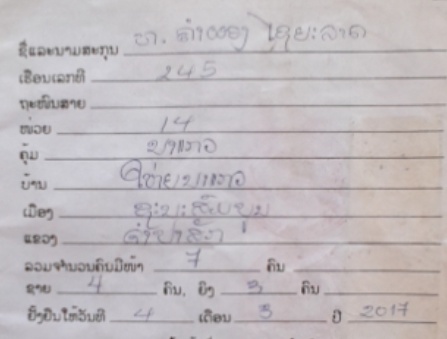 ຊື່ແລະນາມສະກຸນ ທ. ຄຳຂອງ ໄຊຍະລາດ
ເຮືອນເລກທີ 245
ຖະໜົນສາຍ
ໜ່ວຍ 14
ຄຸ້ມ ນາແກວ
ບ້ານ
ເມືອງ ຊະນະສົມບູນ
ແຂວງ ຈຳປາສັກ
ລວມຈຳນວນຄົນມີໜ້າ 7 ຄົນ
ຊາຍ 4 ຄົນ, ຍິງ 3 ຄົນ
ຍັ້ງຢືນໃຫ້ວັນທີ 4 ເດືອນ 3 ປີ 2017